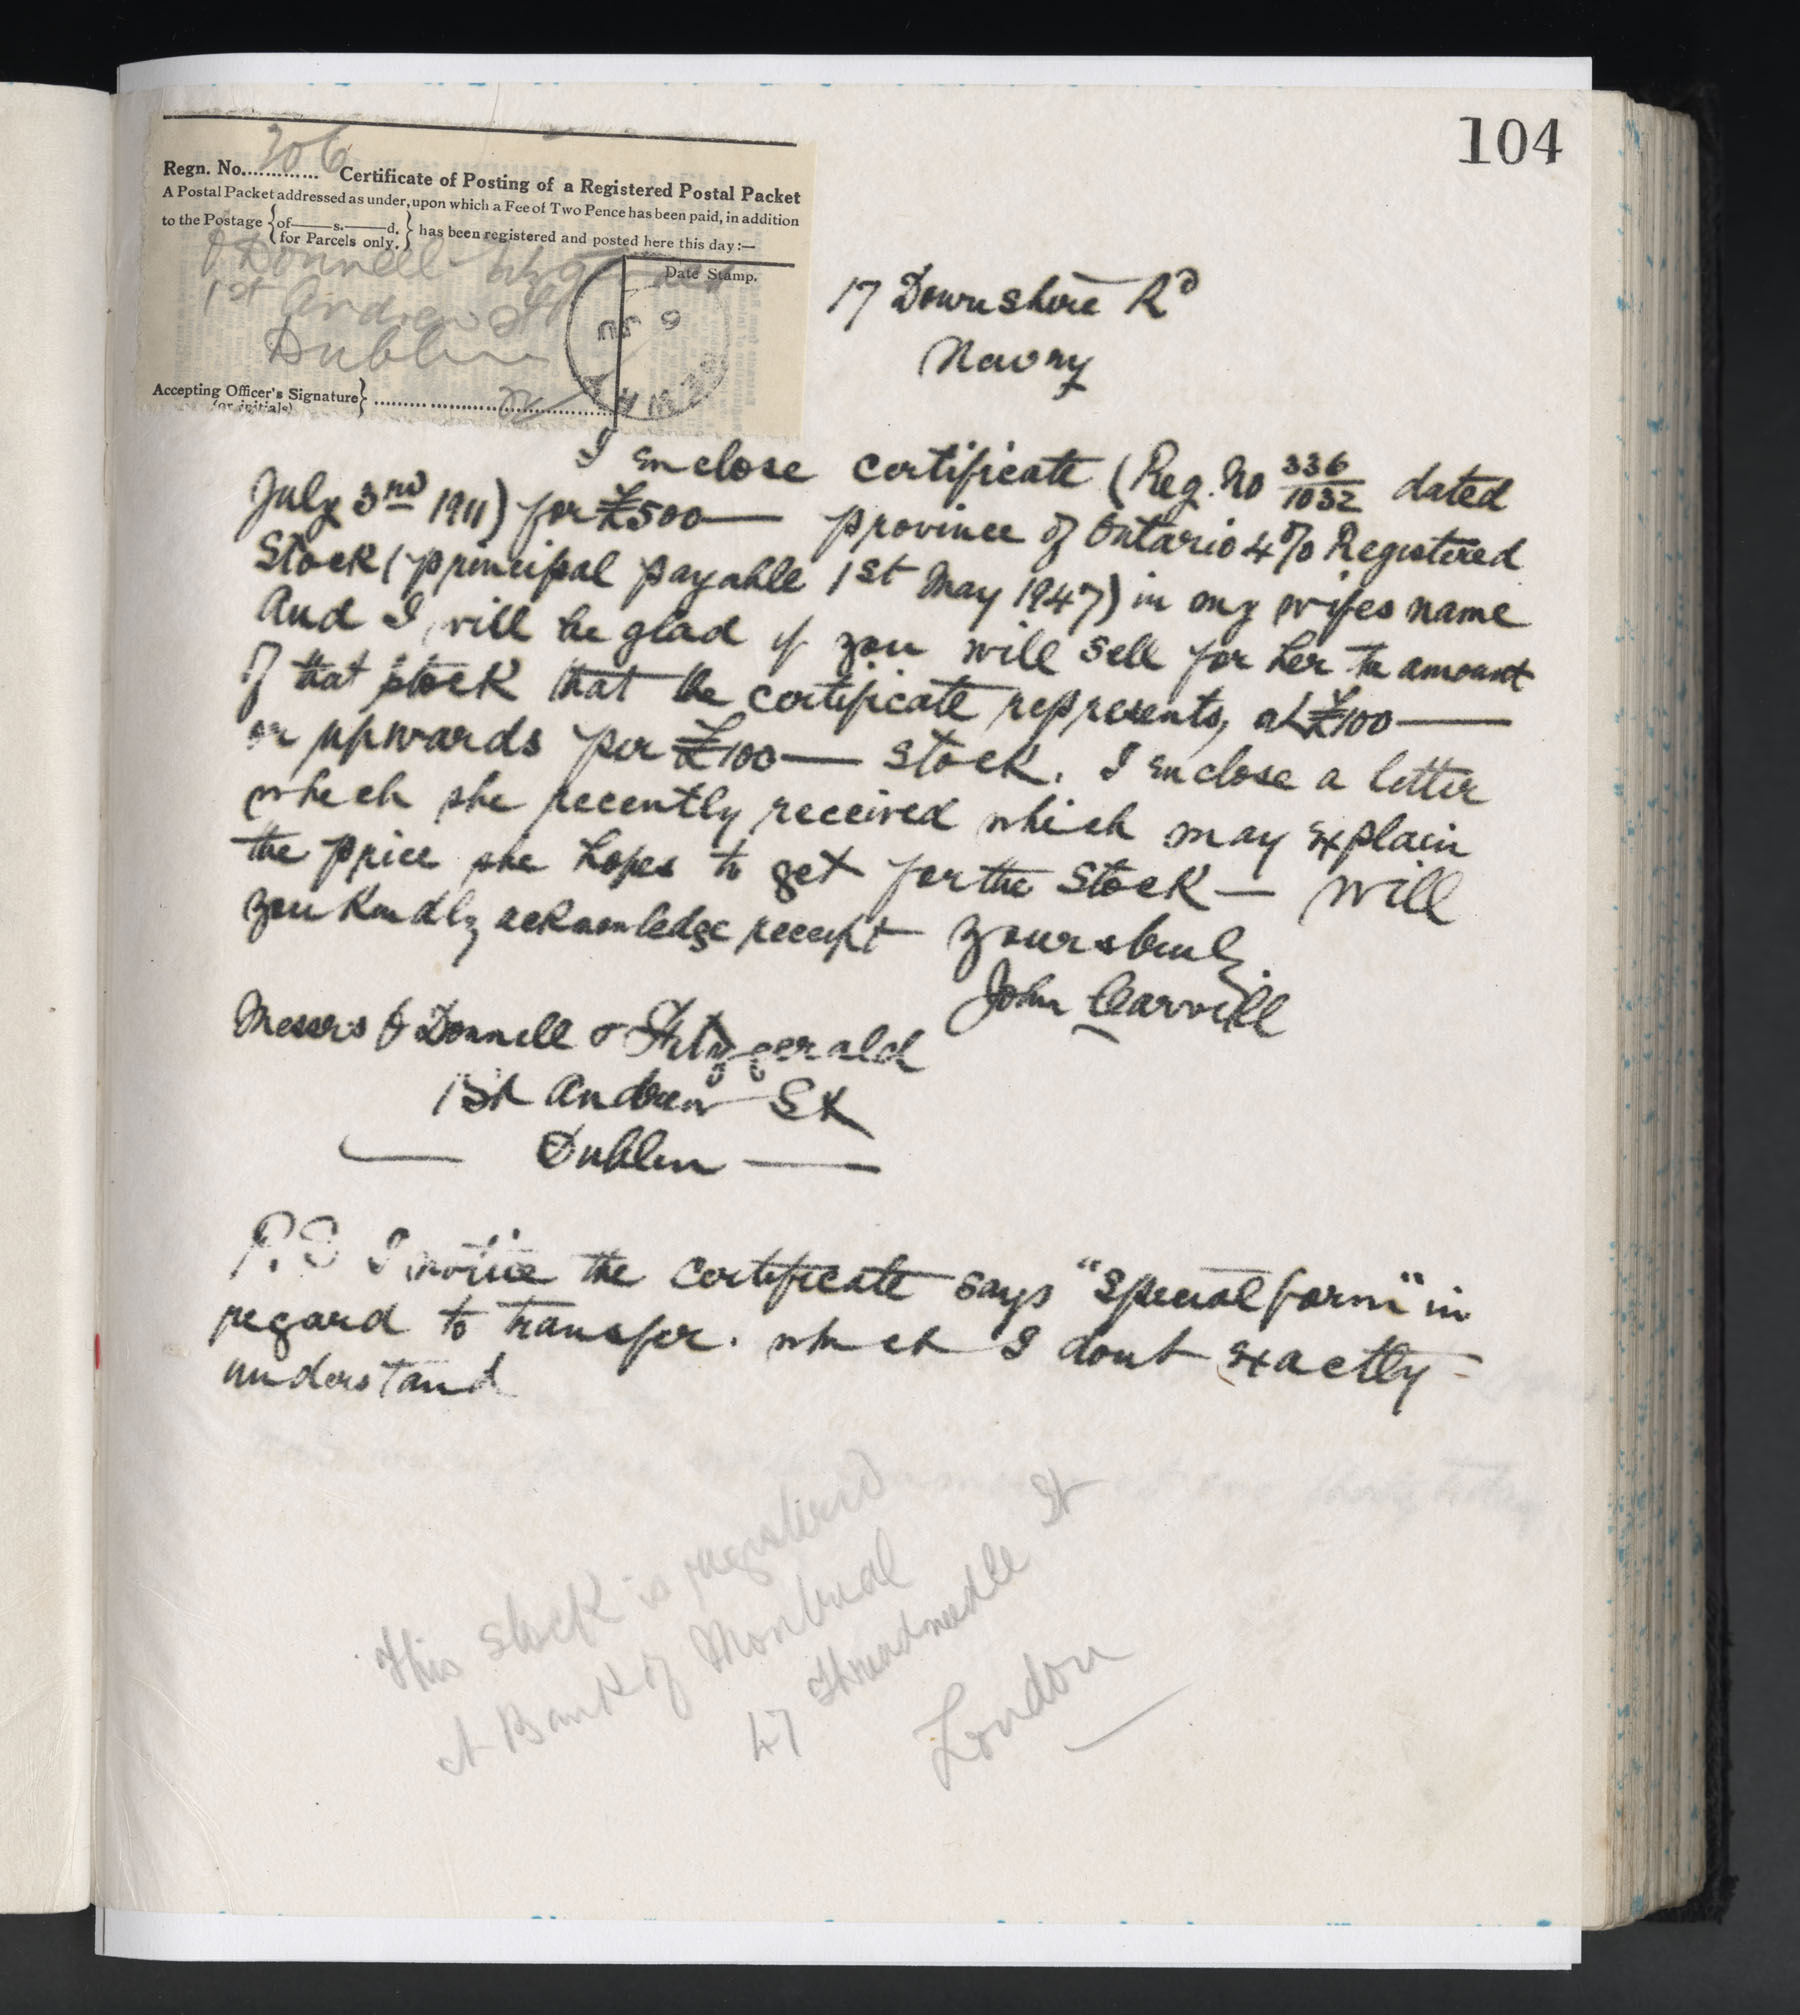 104
Regn. No. 206 Certificate of Posting of a Registered Postal Packet
A Postal Packet addressed as under, upon which a Fee of Two Pence has been paid, in addition
to the Postage {of——s.——d. for Parcels only.} has been registered and posted here this day:—
O'Donnell
Date Stamp.
1 St Andrew St
Dublin
Accepting Officer's Signature
(or initials)
17 Downshire Rd
Newry
I enclose certificate (Reg. No 336/1032 dated
July 3rd 1911) for £500— province of Ontario 4% Registered
Stock (principal payable 1st May 1947) in my wifes name
And I will be glad if you will sell for her the amount
of that stock that the certificate represents, at £100—
or upwards per £100— stock. I enclose a letter
which she recently received which may explain
the price she hopes to get for the stock — Will
you kindly acknowledge receipt Yours truly
John Carvill
Messrs O'Donnell & Fitzgerald
1 St Andrew St
— Dublin —
P.S I notice the certificate says "Special form" in
regard to transfer. which I dont exactly
understand
This stock is registered
at Bank of Montreal
47 Threadneedle St
London